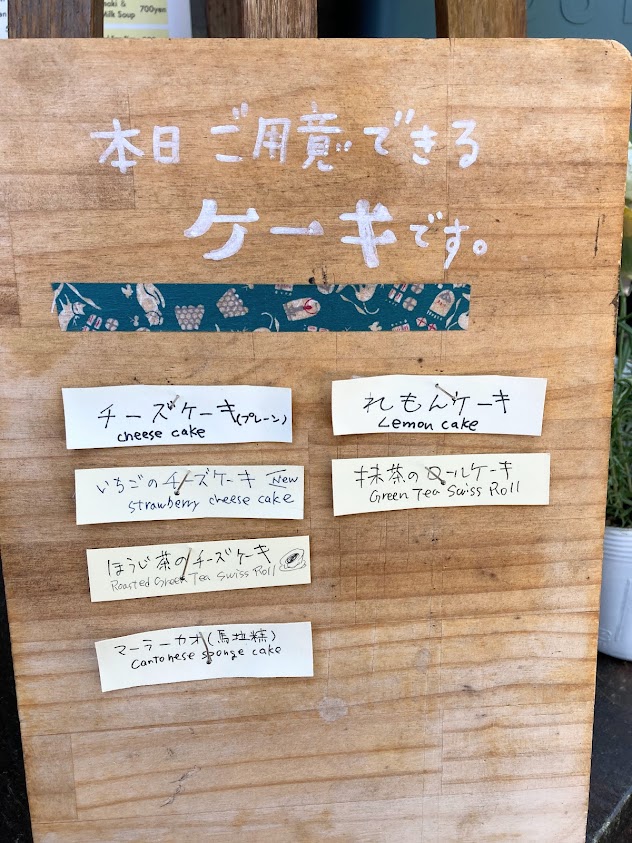 700yen
Milk Soup
本日ご用意できる
ケーキです。
チーズケーキ(プレーン)
cheese cake
いちごのチーズケーキ New
Strawberry cheese cake
ほうじ茶のチーズケーキ
Roasted Green Tea Swiss Roll
マーラーカオ(馬拉糕)
Cantonese sponge cake
れもんケーキ
Lemon cake
抹茶のロールケーキ
Green Tea Swiss Roll